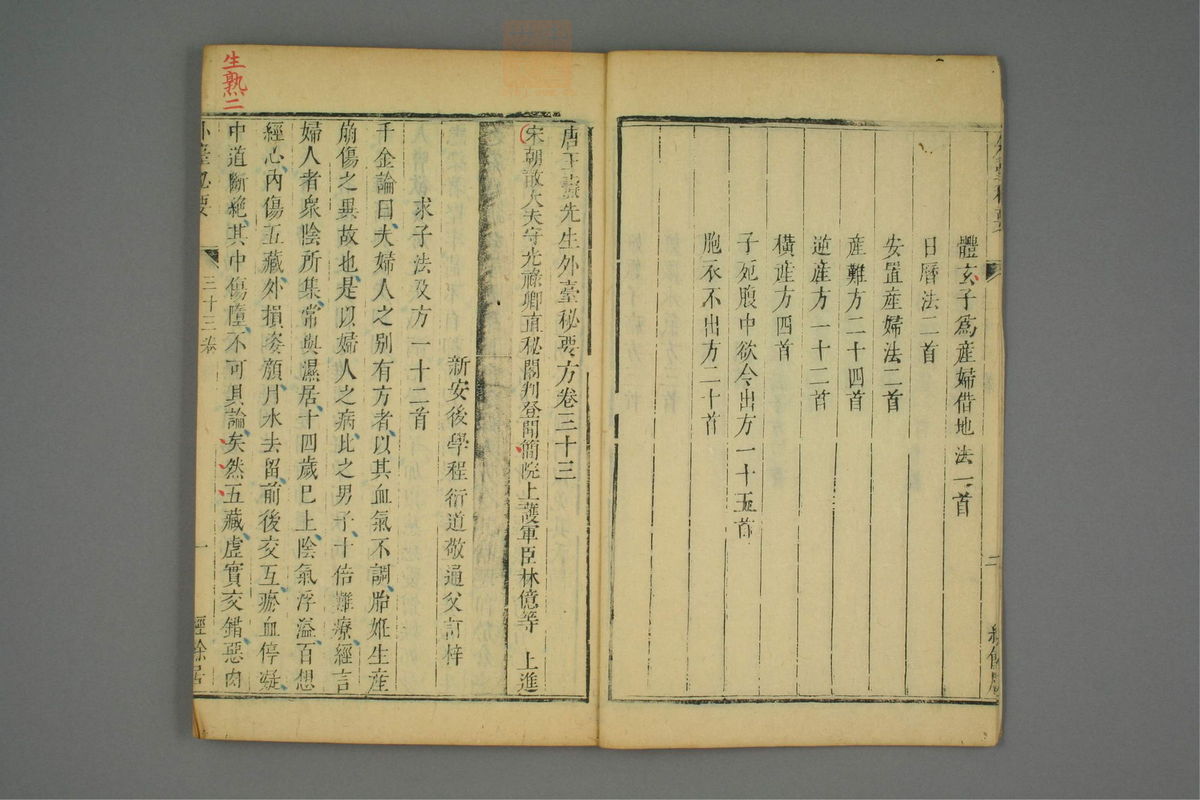 體玄子為產婦借地法一首
日曆法二首
安置產婦法二首
產難方二十四首
逆產方一十二首
橫產方四首
子死腹中欲令出方一十五首
胞衣不出方二十首
二
生熟二
唐王燾先生外臺秘要方卷三十三
宋朝散大夫守光祿卿直秘閣判登聞簡院上護軍臣林億等　上進
新安後學程衍道敬通父訂梓
求子法及方一十二首
千金論曰夫婦人之別有方者以其血氣不調胎姙生產
崩傷之異故也是以婦人之病比之男子十倍難療經言
婦人者衆陰所集常與濕居十四歲已上陰氣浮溢百想
經心內傷五藏外損姿顏月水去留前後交互瘀血停凝
中道斷絕其中傷墮不可具論矣然五藏虛實交錯惡肉
外臺秘要
三十三卷
一
經餘居